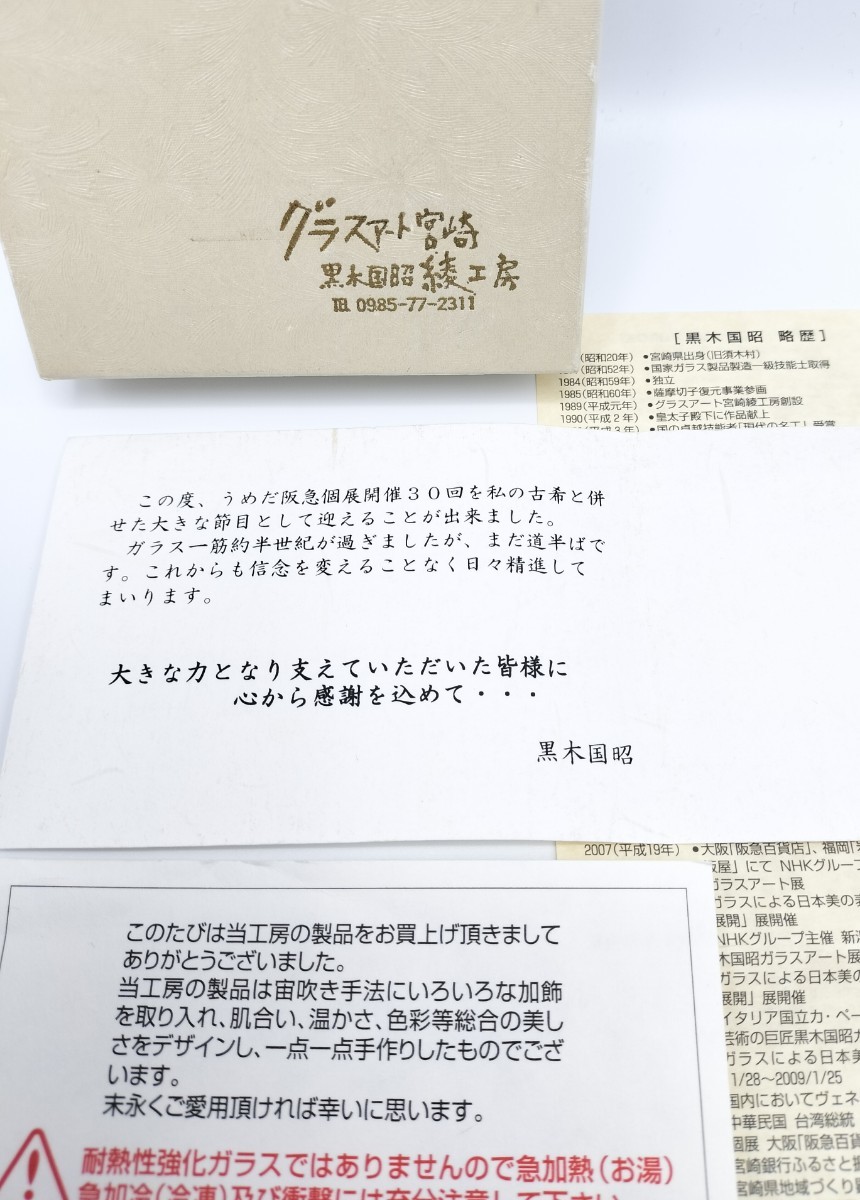 グラスアート宮崎
黒木国昭 綾工房
TEL 0985-77-2311
[黒木国昭 略歴]
(昭和20年) ●宮崎県出身(旧須木村)
(昭和52年) ●国家ガラス製品製造一級技能士取得
1984(昭和59年) ●独立
1985(昭和60年) ●薩摩切子復元事業参画
1989(平成元年) ●グラスアート宮崎綾工房創設
1990(平成2年) ●皇太子殿下に作品献上
(平成3年) ●国の卓越技能者「現代の名工」受賞
この度、うめだ阪急個展開催30回を私の古希と併
せた大きな節目として迎えることが出来ました。
ガラス一筋約半世紀が過ぎましたが、まだ道半ばで
す。これからも信念を変えることなく日々精進して
まいります。
大きな力となり支えていただいた皆様に
心から感謝を込めて・・・
黒木国昭
2007(平成19年) ●大阪「阪急百貨店」、福岡「
屋」にて NHKグループ
ガラスアート展
ガラスによる日本美の
展開」展開催
NHKグループ主催 新
木国昭ガラスアート展
ガラスによる日本美の
展開」展開催
イタリア国立カ・ペー
芸術の巨匠黒木国昭
ガラスによる日本美
1/28〜2009/1/25
国内においてヴェネ
中華民国 台湾総統
個展 大阪「阪急百貨
宮崎銀行ふるさと振
宮崎県地域づくり
このたびは当工房の製品をお買上げ頂きまして
ありがとうございました。
当工房の製品は宙吹き手法にいろいろな加飾
を取り入れ、肌合い、温かさ、色彩等総合の美し
さをデザインし、一点一点手作りしたものでござ
います。
末永くご愛用頂ければ幸いに思います。
耐熱性強化ガラスではありませんので急加熱(お湯)
急加冷(冷凍)及び衝撃には充分注意して下さい